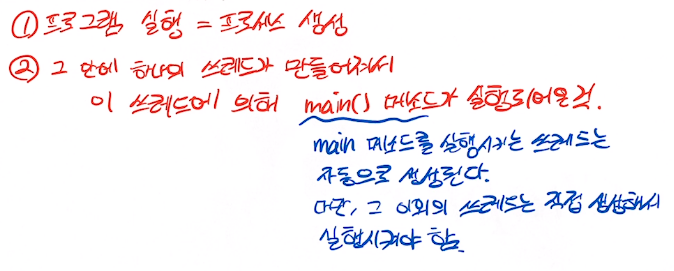 ① 프로그램 실행 = 프로세스 생성
② 그 안에 하나의 쓰레드가 만들어져서
이 쓰레드에 의해 main() 메소드가 실행되어온 것.
main 메소드를 실행시키는 쓰레드는
자동으로 생성된다.
다만, 그 이외의 쓰레드는 직접 생성해서
실행시켜야 함.